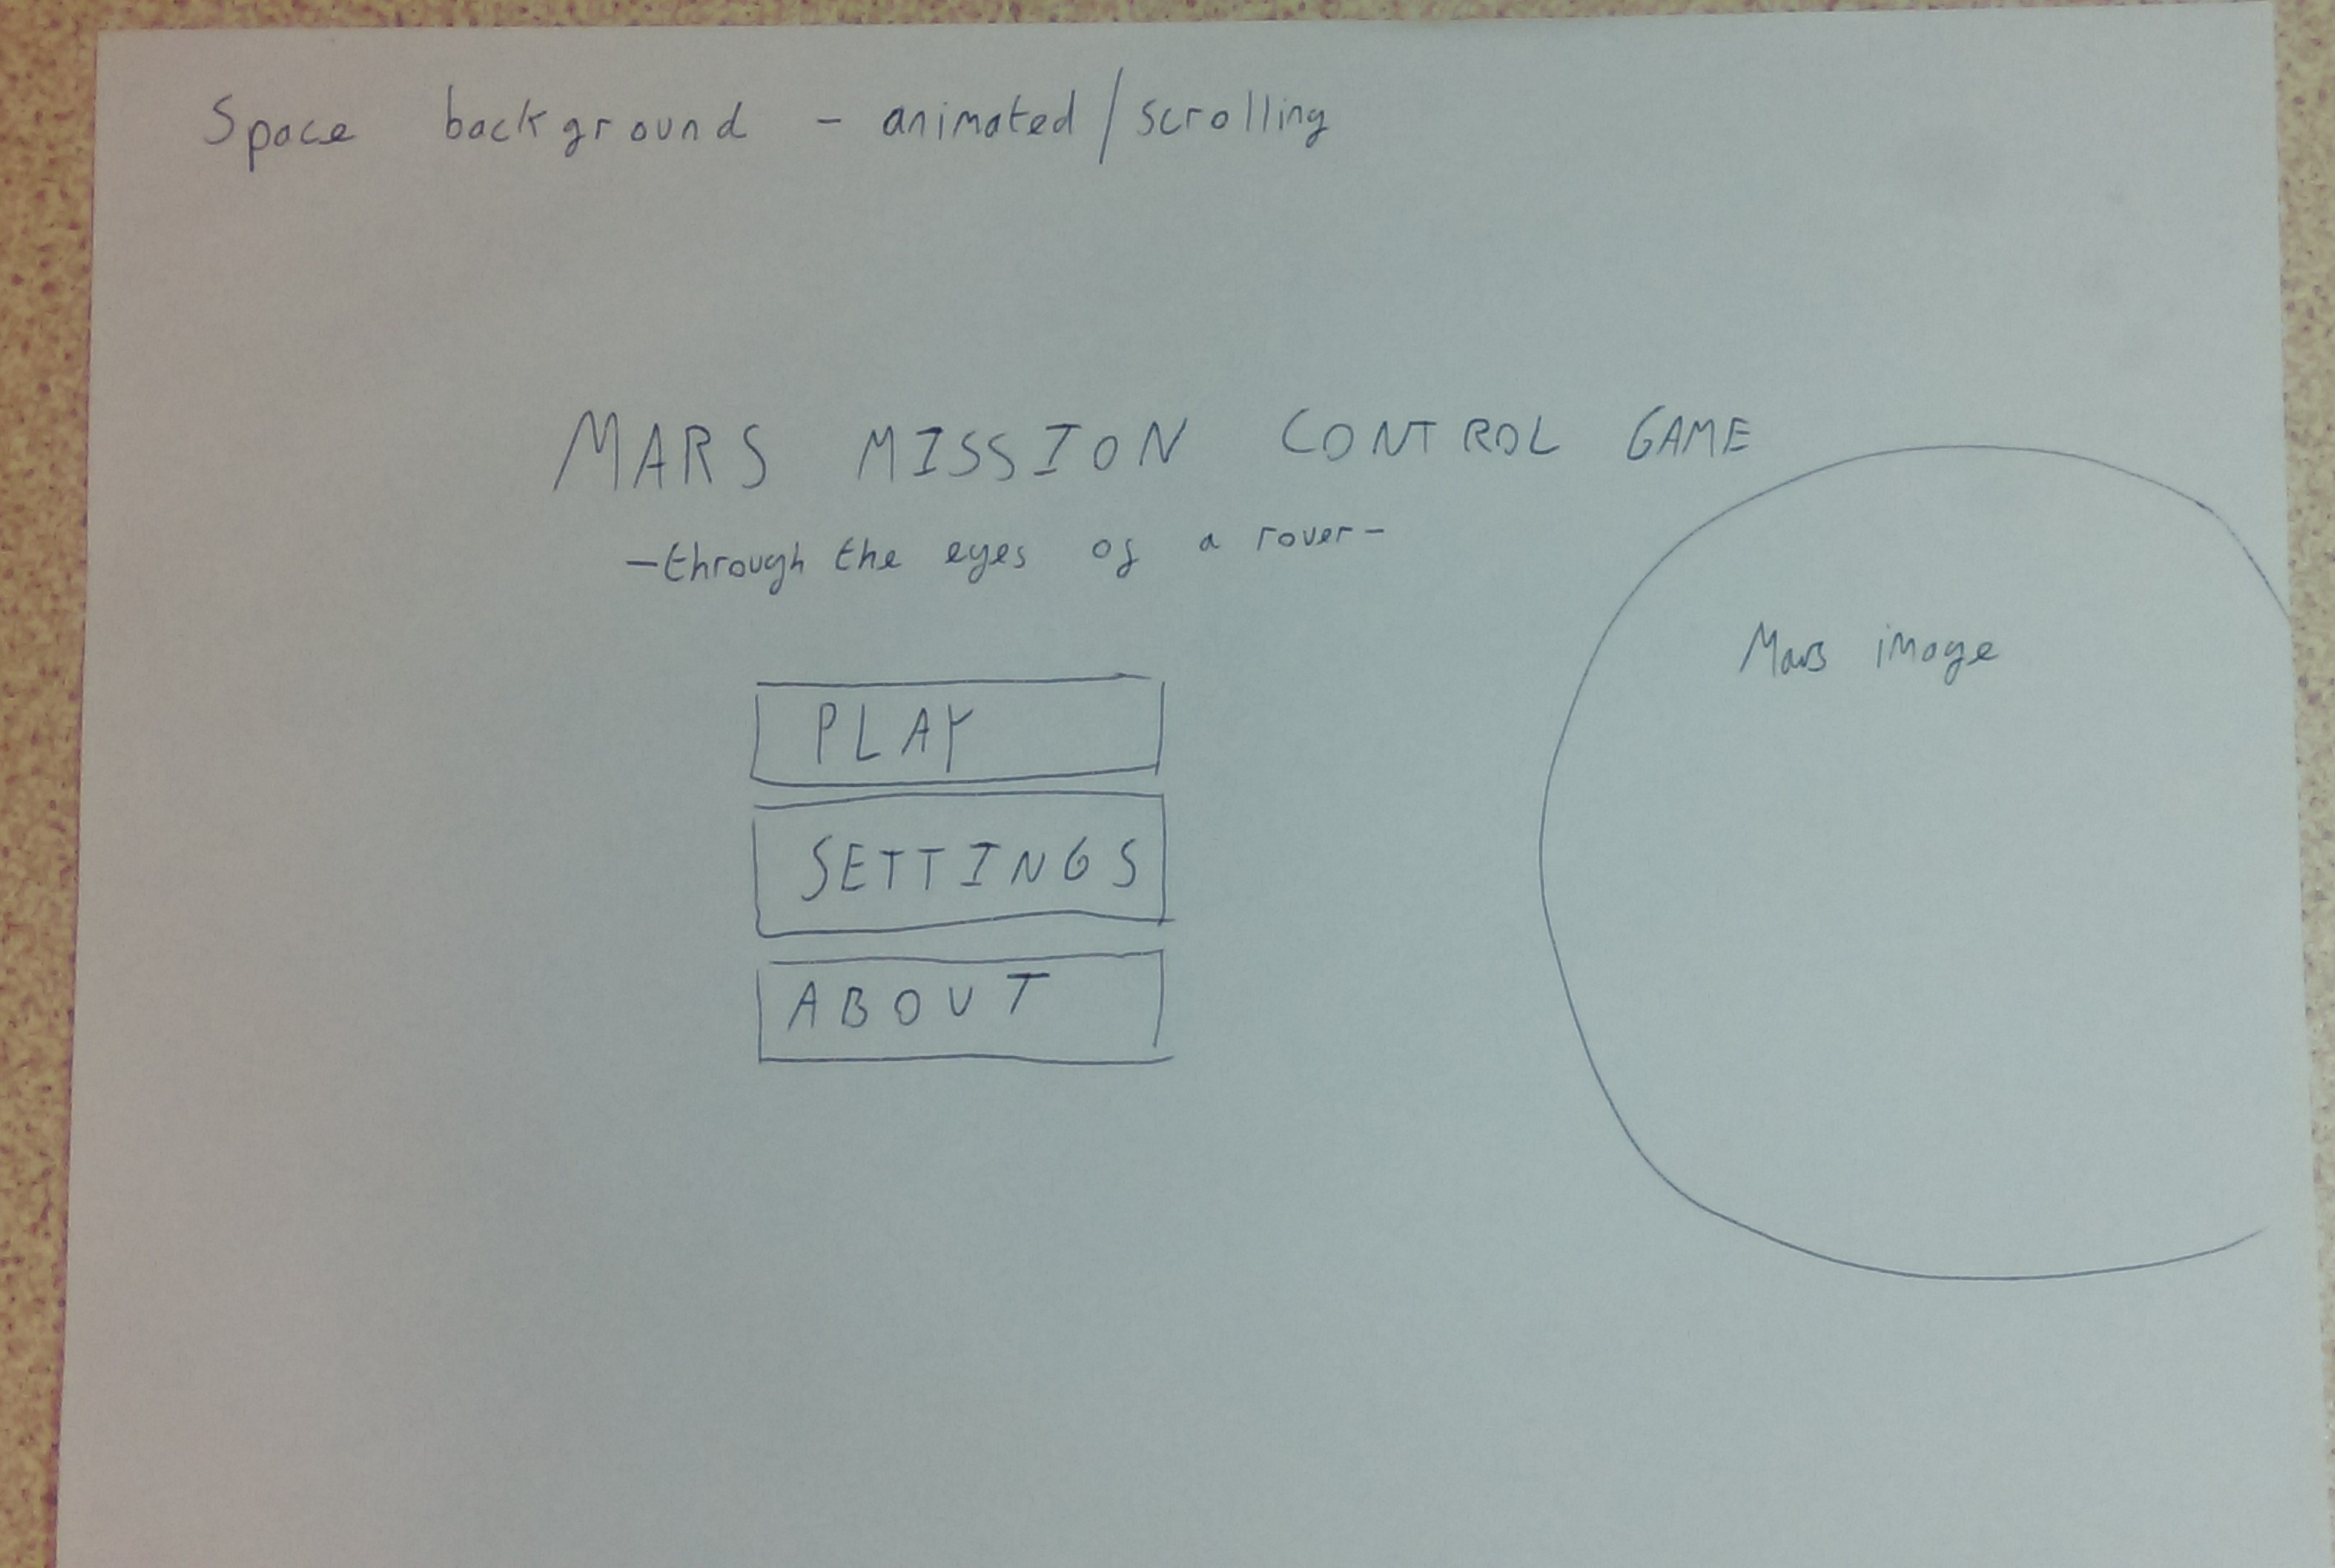 Space background - animated/scrolling
MARS MISSION CONTROL GAME
-through the eyes of a rover-
Mars image
PLAY
SETTINGS
ABOUT